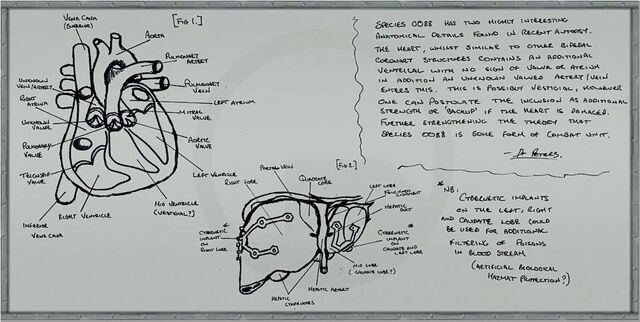 Vena Cava
(Superior)
[Fig 1.]
Aorta
Pulmonary
Artery
Pulmonary
Vein
Unknown
Vein/Artery
Left Atrium
Right
Atrium
Mitral
Valve
Unknown
Valve
Aortic
Valve
Pulmonary
Valve
Left Ventricle
Tricuspid
Valve
Mid Ventricle
(Vestigial?)
Right Ventricle
Inferior
Vena Cava
Species 0088 has two highly interesting
anatomical details found in recent autopsy.
The heart, whilst similar to other bipedal
coronary structures contains an additional
ventricle with no sign of valve or atrium
in addition an unknown valved artery/vein
enters this. This is possibly vestigial, however
one can postulate the inclusion as additional
strength or 'backup' if the heart is damaged.
Further strengthening the theory that
Species 0088 is some form of combat unit.
- A Peters.
[Fig 2.]
Portal Vein
Quadrate
Lobe
Right Lobe
Left Lobe
Ligament
Hepatic
Duct
* Cybernetic
Implant
on
Right Lobe
* Cybernetic
Implant
on
Caudate and
Left Lobe
Mid Lobe
(Caudate Lobe?)
Hepatic Artery
Hepatic
*NB:
Cybernetic implants
on the left, right
and caudate lobe could
be used for additional
filtering of poisons
in blood stream
(Artificial Biological
Hazmat Protection?)